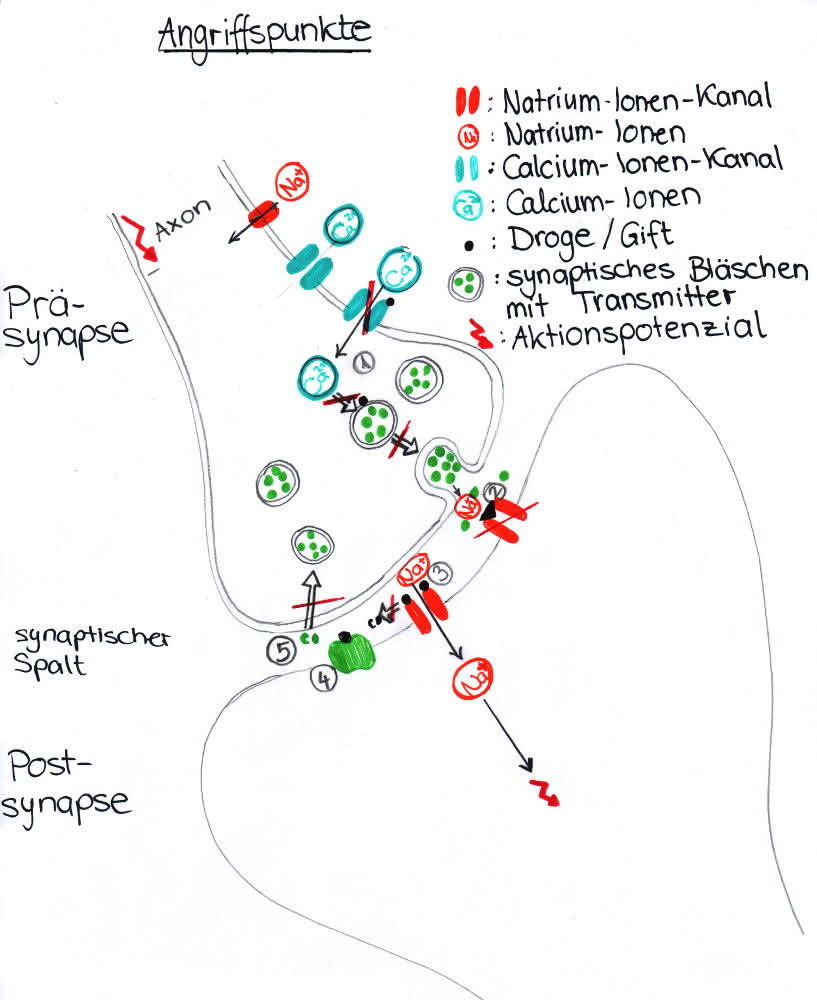 Angriffspunkte
: Natrium-Ionen-Kanal
Na⁺ : Natrium-Ionen
: Calcium-Ionen-Kanal
Ca²⁺ : Calcium-Ionen
: Droge/Gift
: synaptisches Bläschen
mit Transmitter
: Aktionspotenzial
Na⁺
Axon
Ca²⁺
Ca²⁺
Prä-
synapse
1
Ca²⁺
2
Na⁺
Na⁺
3
synaptischer
Spalt
5
4
Na⁺
Post-
synapse